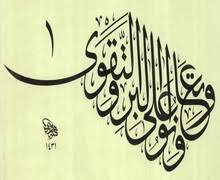 وتعاونوا على البر والتقوى
١
١٤٣١